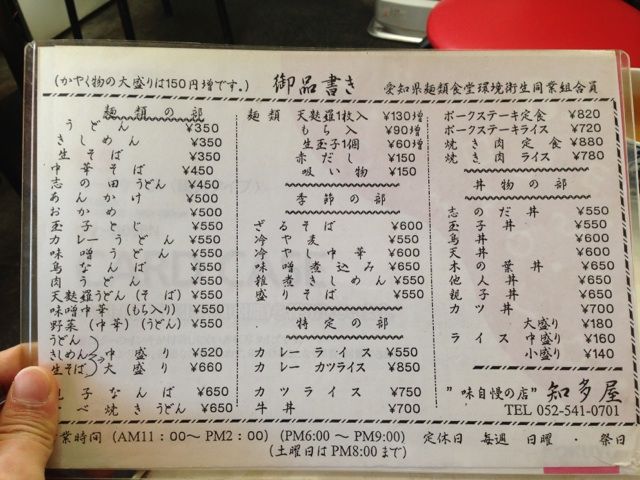 (かやく物の大盛りは150円増です。) 御品書き 愛知県麺類食堂環境衛生同業組合員
麺類の部
うどん ¥350
きしめん ¥350
生そば ¥350
中華そば ¥450
志の田うどん ¥450
あんかけ ¥500
おかめ ¥500
玉子とじ ¥550
カレーうどん ¥550
味噌うどん ¥550
鳥なんば ¥550
肉うどん ¥550
天麩羅うどん(そば) ¥550
味噌中華(もち入り) ¥550
野菜(中華)(うどん) ¥550
うどん
きしめん 中盛り ¥520
生そば 大盛り ¥660
子なんば ¥650
べ焼きうどん ¥650
麺類 天麩羅1枚入 ¥130増
もち入 ¥90増
生玉子1個 ¥60増
赤だし ¥150
吸い物 ¥150
季節の部
ざるそば ¥600
冷や麦 ¥550
冷やし中華 ¥600
味噌煮込み ¥650
雑煮きしめん ¥550
盛りそば ¥550
特定の部
カレーライス ¥550
カレーカツライス ¥850
カツライス ¥750
牛丼 ¥700
ポークステーキ定食 ¥820
ポークステーキライス ¥720
焼き肉定食 ¥880
焼き肉ライス ¥780
丼物の部
志のだ丼 ¥550
玉子丼 ¥550
鳥丼 ¥600
天丼 ¥600
木の葉丼 ¥650
他人丼 ¥650
親子丼 ¥650
カツ丼 ¥700
大盛り ¥180
ライス 中盛り ¥160
小盛り ¥140
”味自慢の店” 知多屋
TEL 052-541-0701
業時間 (AM11:00〜PM2:00) (PM6:00〜PM9:00) 定休日 毎週 日曜・祭日
(土曜日はPM8:00まで)